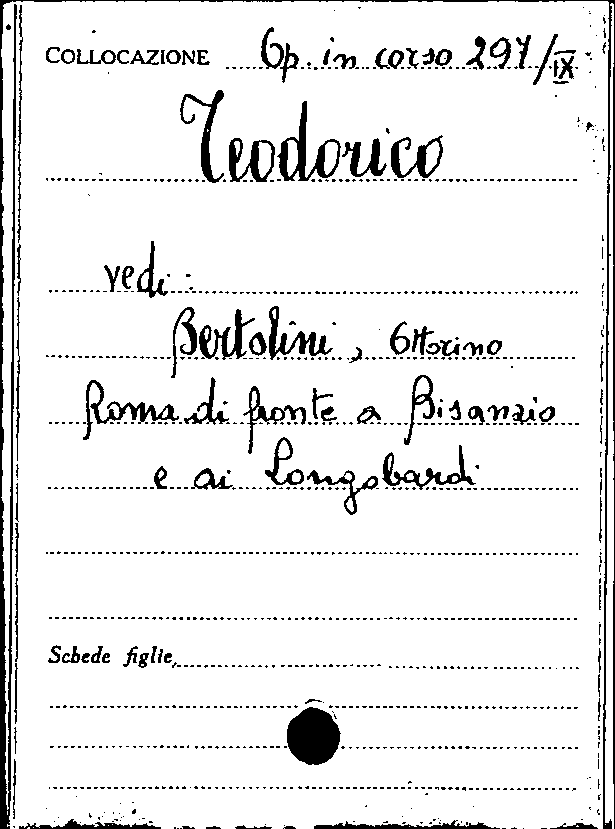 COLLOCAZIONE Op. in corso 297/IX
Teodorico
vedi:
Bertolini, Ottorino
Roma di fronte a Bisanzio
e ai Longobardi
Schede figlie,